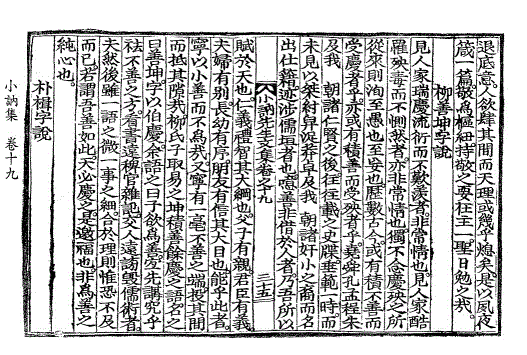 退底意。人欲肆其間而天理或幾乎熄矣。是以夙夜
箴一篇。敬爲樞紐。持敬之要在主一。聖日勉之哉。
柳善坤字說
見人家瑞慶流衍而不歎羨者。非常情也。見人家酷
罹殃害而不惻然者。亦非常情也。獨不念慶殃之所
從來則洵至愚也至妄也。歷數古今。或有積不善而
受慶者乎。亦或有積善而受殃者乎。堯舜孔孟程朱
及我 朝諸仁賢之後。往往載之史牒垂範一時。而
未見以桀紂浞莽卓及我 朝諸奸小之裔而名
出仕籍迹涉儒垣者也。噫善非借於人者。乃吾所以
小訥先生文集卷之十九 三十五
賦於天也。仁義禮智其大綱也。父子有親君臣有義
夫婦有別長幼有序朋友有信其大目也。能乎此者。
寧以小善而不爲哉。又寧有一毫不善之端投其間
而抵其隙哉。柳氏子取易之坤積善餘慶之語。名之
曰善坤。字以伯慶。余語之曰子欲爲善。必先講究乎
祛不善之方。看書遠稗官雜記。交人遠訪毁儒術者。
夫然後雖一語之微一事之細。合於理則惟恐不及
而已。若謂吾善如此。天必慶之。是邀福也。非爲善之
純心也。
朴楫字說
小訥集 卷十九